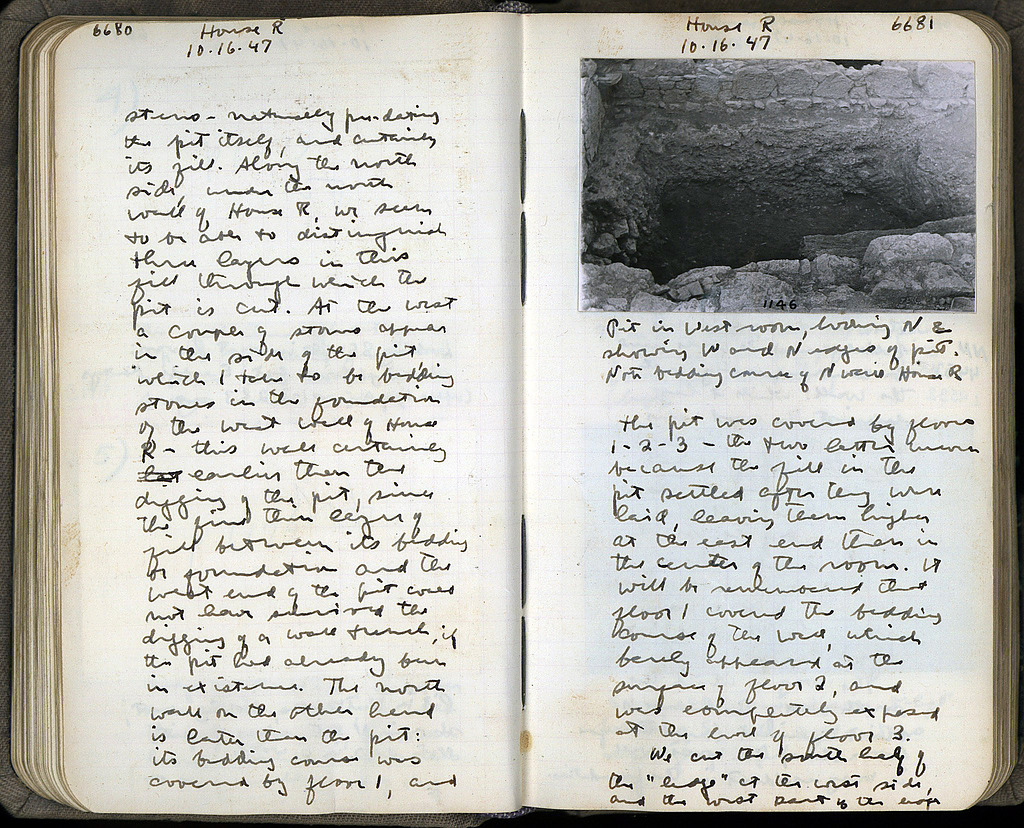 6680
House R
10.16.47
sterns - naturally pre-dating
the pit itself, and certainly
its fill. Along the north
side, under the north
wall of House R, we seem
to be able to distinguish
three layers in this
fill through which the
pit is cut. At the west
a couple of stones appear
in the side of the pit
which I take to be bedding
stones in the foundation
of the west wall of House
R - this wall certainly
earlier than the
digging of the pit, since
the thin layer of
fill between its bedding
or foundation and the
west end of the pit could
not have survived the
digging of a wall trench, if
the pit had already been
in existence. The north
wall on the other hand
is later than the pit:
its bedding course was
covered by floor 1, and
House R
6681
10.16.47
1146
Pit in West room, looking N &
showing W and N edges of pit.
Note bedding course of N wall House R
The pit was covered by floors
1-2-3 - the two latter uneven
because the fill in the
pit settled after they were
laid, leaving them higher
at the east end than in
the center of the room. It
will be remembered that
floor 1 covered the bedding
course of the wall, which
barely appeared at the
surface of floor 2, and
was completely exposed
at the level of floor 3.
We cut the south half of
the "ledge" at the west side,
and the west part of the